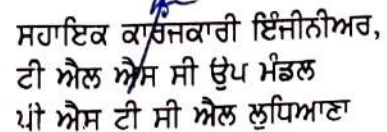 ਸਹਾਇਕ ਕਾਰਜਕਾਰੀ ਇੰਜੀਨੀਅਰ,
ਟੀ ਐਲ ਐਸ ਸੀ ਉਪ ਮੰਡਲ
ਪੀ ਐਸ ਟੀ ਸੀ ਐਲ ਲੁਧਿਆਣਾ